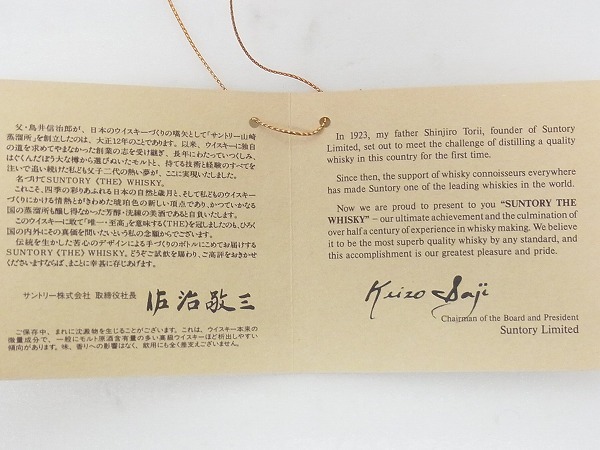 父・鳥井信治郎が、日本のウイスキーづくりの嚆矢として「サントリー山崎
蒸溜所」を創立したのは、大正12年のことであります。以来、ウイスキーに独自
の道を求めてやまなかった創業の志を受け継ぎ、長年にわたっていつくしみ、
はぐくんだぼう大な樽から選びぬいたモルトと、持てる技術と経験のすべてを
注いで追い続けた私ども父子二代の熱い夢が、ここに実現いたしました。
名づけてSUNTORY〈THE〉WHISKY。
これこそ、四季の彩りあふれる日本の自然と歳月と、そして私どものウイスキー
づくりにかける情熱とがきわめた琥珀色の新しい頂点であり、かつていかなる
国の蒸溜所も醸し得なかった芳醇・洗練の美酒であると自負いたします。
このウイスキーに敢て「唯一・至高」を意味する〈THE〉を冠しましたのも、ひろく
国の内外にその真価を問いたいという私の念願からでございます。
伝統を生かした苦心のデザインによる手づくりのボトルにこめてお届けする
SUNTORY〈THE〉WHISKY。どうぞご試飲を賜わり、ご高評をおきかせ
くださいますならば、まことに幸甚に存じあげます。
サントリー株式会社 取締役社長 佐治敬三
ご保存中、まれに沈澱物を生じることがございます。これは、ウイスキー本来の
微量成分で、一般にモルト原酒含有量の多い高級ウイスキーほど析出しやすい
傾向があります。味、香りへの影響はなく、飲用にも全く差支えございません。
In 1923, my father Shinjiro Torii, founder of Suntory
Limited, set out to meet the challenge of distilling a quality
whisky in this country for the first time.
Since then, the support of whisky connoisseurs everywhere
has made Suntory one of the leading whiskies in the world.
Now we are proud to present to you “SUNTORY THE
WHISKY” – our ultimate achievement and the culmination of
over half a century of experience in whisky making. We believe
it to be the most superb quality whisky by any standard, and
this accomplishment is our greatest pleasure and pride.
Keizo Saji
Chairman of the Board and President
Suntory Limited